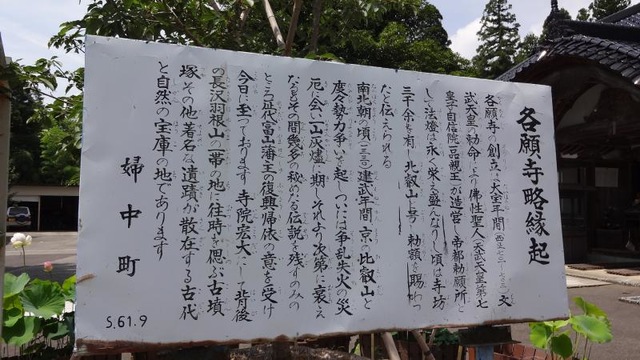 各願寺略縁起
各願寺の創立は大宝年間
武天皇の勅命により佛性聖人(天武天皇第七
皇子自信院一品親王)が造営し帝都勅願所と
して法燈は永く栄え盛んなりし頃は寺坊
三千余を有し北叡山と号し勅額を賜わっ
たと伝えられる
南北朝の頃建武年間京の比叡山と
度々勢力争いを起しついには争乱失火の災
厄に会い山灰燼に期しそれより次第に衰え
なるもその間幾多の秘めたる伝説を残すのみの
ところ近代富山藩主の復興帰依の意を受け
今日に至っております寺院宏大にして背後
の長沢羽根山の一帯の地に往時を偲ぶ古墳
塚その他著名な遺蹟が散在する古代
と自然の宝庫の地であります
婦中町
S.61.9